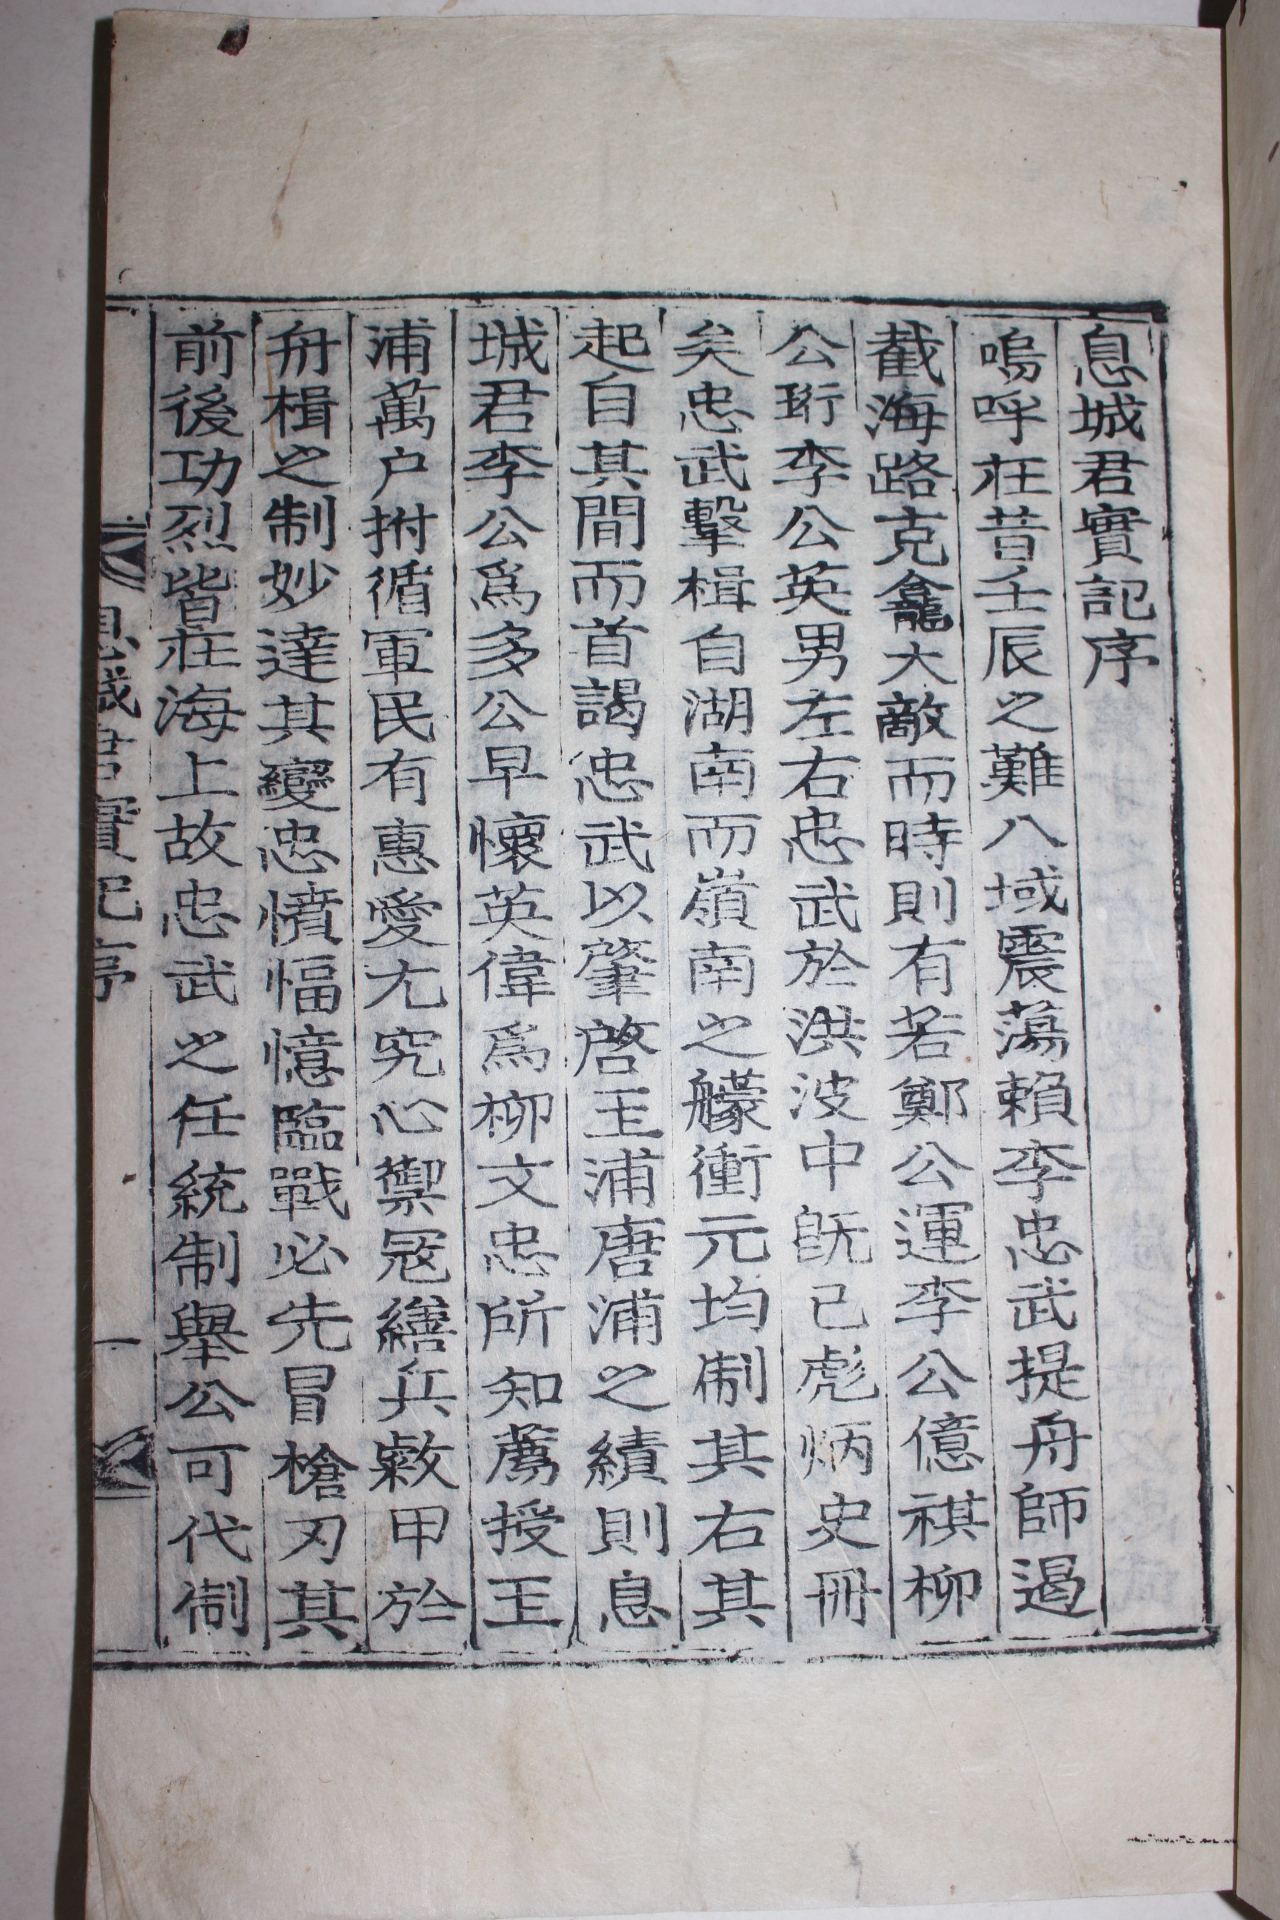 息城君實記序
嗚呼在昔壬辰之難八域震蕩賴李忠武提舟師遏
截海路克龕大敵而時則有若鄭公運李公億祺柳
公珩李公英男左右忠武於洪波中旣已彪炳史冊
矣忠武擊楫自湖南而嶺南之艨衝元均制其右其
起自其間而首謁忠武以肇啓玉浦唐浦之績則息
城君李公爲多公早懷英偉爲柳文忠所知薦授玉
浦萬户拊循軍民有惠愛尤究心禦冦繕兵敹甲於
舟楫之制妙達其變忠憤愊憶臨戰必先冒槍刃其
前後功烈皆在海上故忠武之任統制舉公可代制
息城君實記序
一